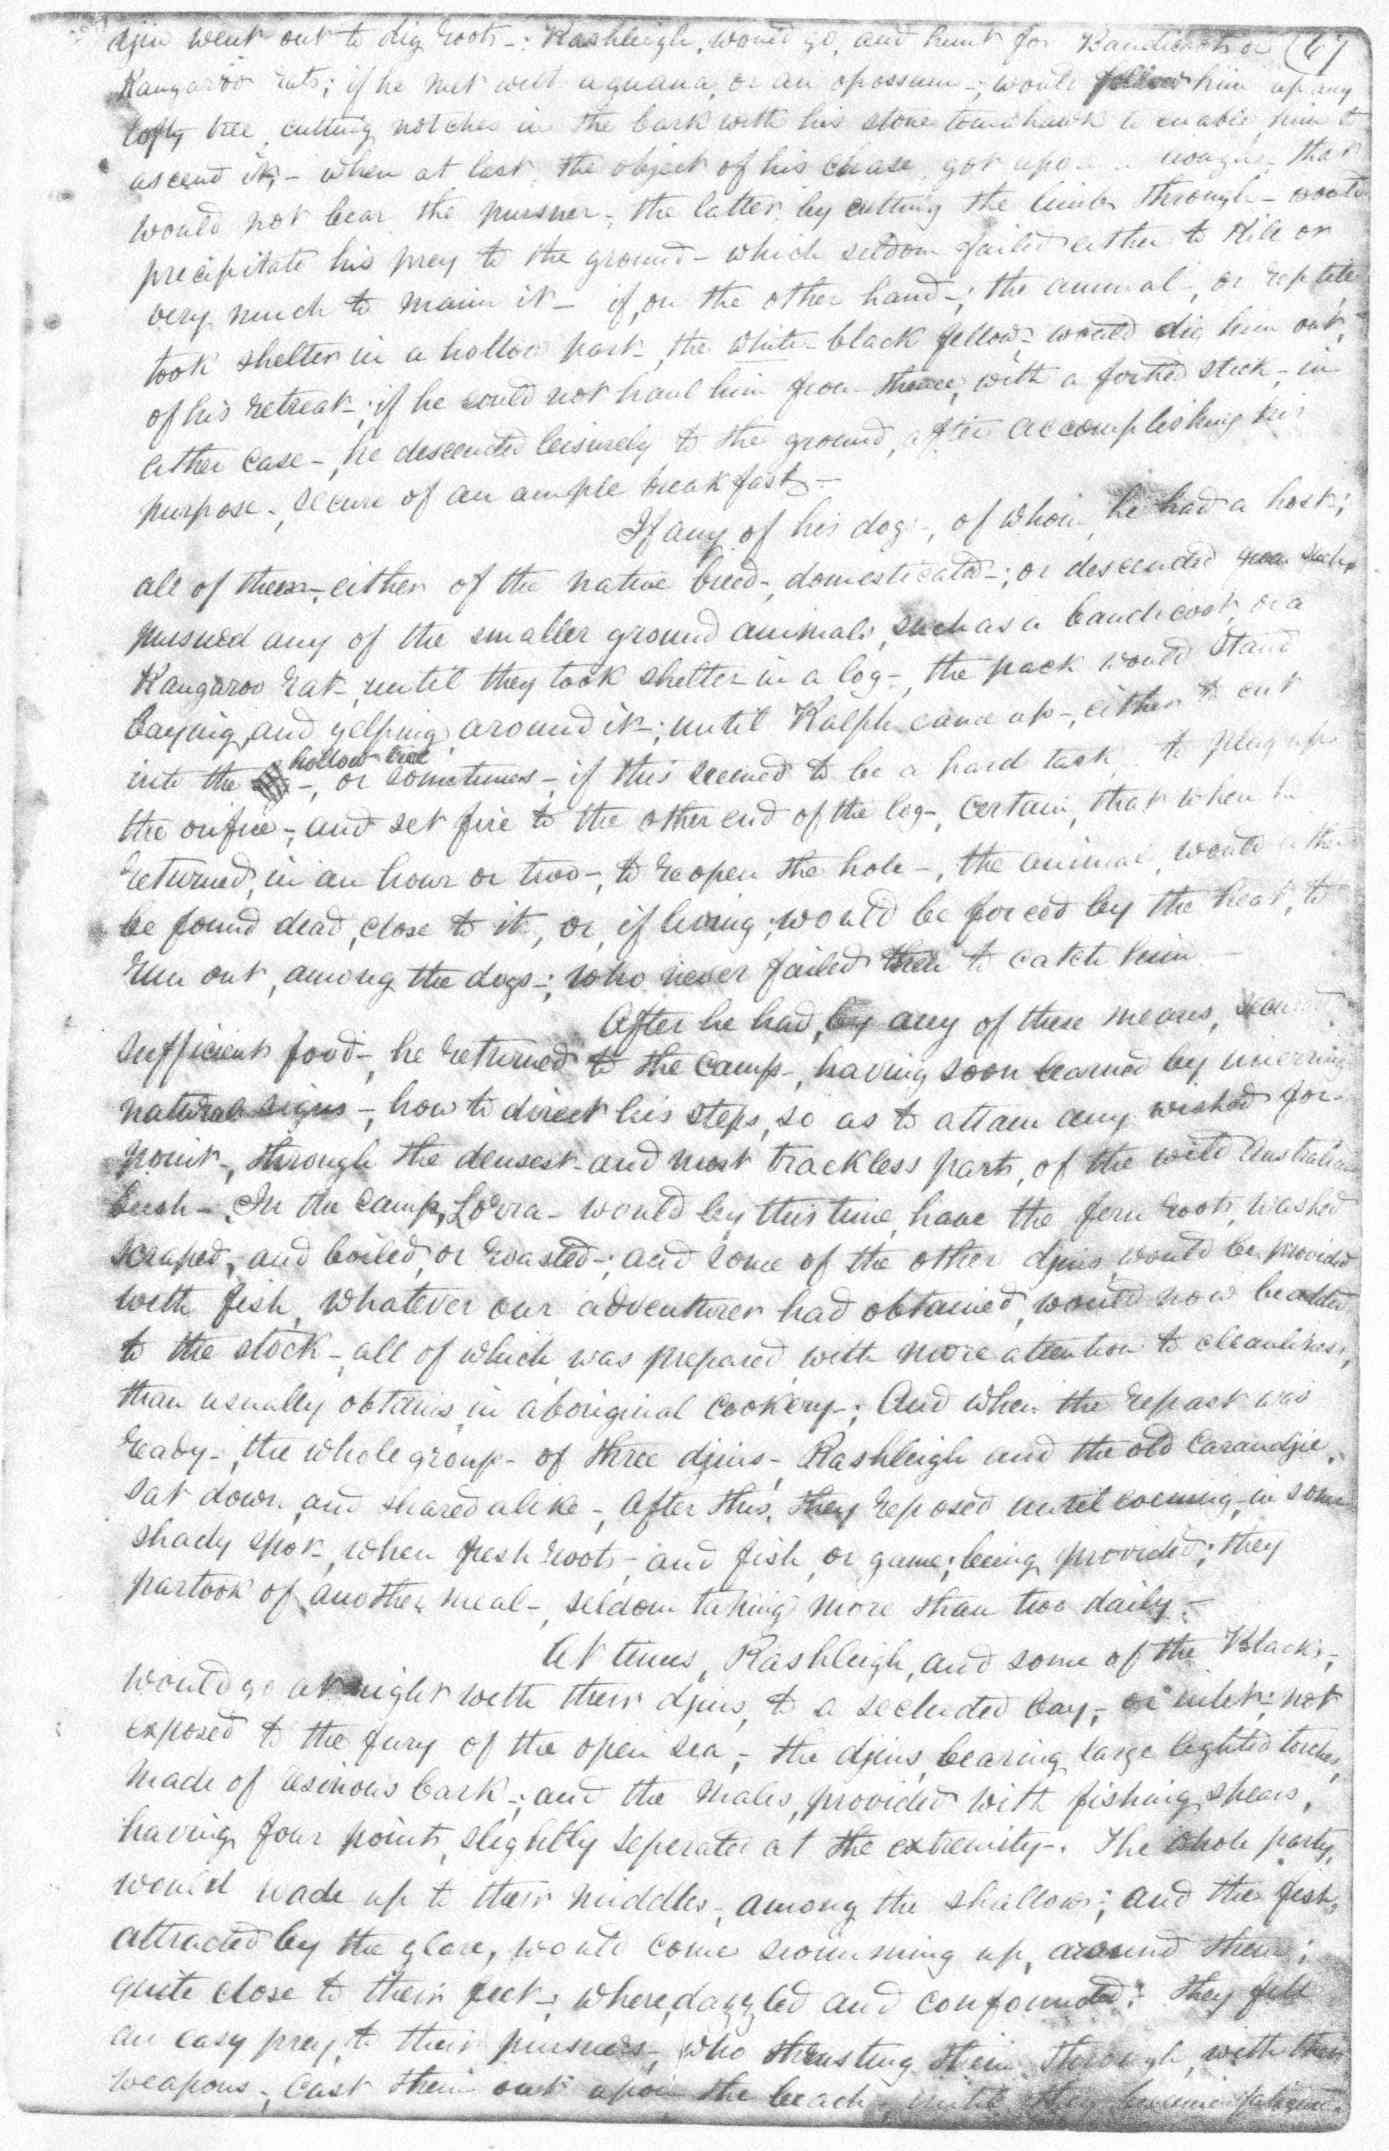 djin went out to dig roots –: Rashleigh, would go, and hunt for Bandicoots or (67
Kangaroo rats; if he met with a guana, or an opossum –; would follow him up any
lofty tree, cutting notches in the bark with his stone tomahawk to enable him to
ascend it; – when at last, the object of his chase, got upon a bough, that
would not bear the pursuer –, the latter, by cutting the limb through – would
precipitate his prey to the ground – which seldom failed either to kill or
very much to maim it – if, on the other hand –; the animal –, or reptile
took shelter in a hollow part –, the white – black fellow – would dig him out,
of his retreat –, if he could not haul him from thence, with a forked stick –, in
either case –, he descended leisurely to the ground, after accomplishing his
purpose –, secure of an ample breakfast –
If any of his dogs –, of whom he had a host –;
all of them –, either of the native breed –, domesticated –; or descended from such,
pursued any of the smaller ground animals, such as a bandicoot, or a
Kangaroo rat –, until they took shelter in a log –, the pack would stand
baying, and yelping, around it –; until Ralph came up –, either to cut
into the hollow tree –, or sometimes –, if this seemed to be a hard task, to plug up
the orifice –, and set fire to the other end of the log –, certain, that when he
returned, in an hour or two –, to reopen the hole –, the animal, would either
be found dead, close to it, or, if living; would be forced by the heat, to
run out, among the dogs –; who never failed then to catch him –
After he had, by any of these means, secured
sufficient food –, he returned to the camp –, having soon learned by unerring
natural signs –, how to direct his steps, so as to attain any wished for –
point –, through the densest – and most trackless parts, of the wild Australian
bush –. In the camp, Lorra – would by this time, have the fern roots, washed
scraped, and boiled, or roasted –; and some of the other djins, would be provided
with fish, whatever our adventurer had obtained, would now be added
to the stock –, all of which, was prepared, with more attention to cleanliness,
than usually obtains in aboriginal cookery –; And when the repast was
ready –, the whole group – of three djins –, Rashleigh and the old Carandjie,
sat down, and shared alike –, After this, they reposed until evening – in some
shady spot –, when fresh roots –, and fish, or game; being provided; they
partook of another meal –, seldom taking more than two daily –
At times, Rashleigh, and some of the Blacks –,
would go at night with their djins, to a secluded bay –, or inlet –; not
exposed to the fury of the open sea –, the djins, bearing large lighted torches,
made of resinous bark –; and the males, provided with fishing spears,
having four points, slightly seperated at the extremity –. The whole party,
would wade up to their middles –, among the shallows; and the fish,
attracted by the glare, would come swimming up, around them;
quite close to their feet –; where, dazzled and confounded: they fell
an easy prey, to their pursuers –, who thrusting them through, with their
weapons –, cast them out upon the beach –, until they became fatigued